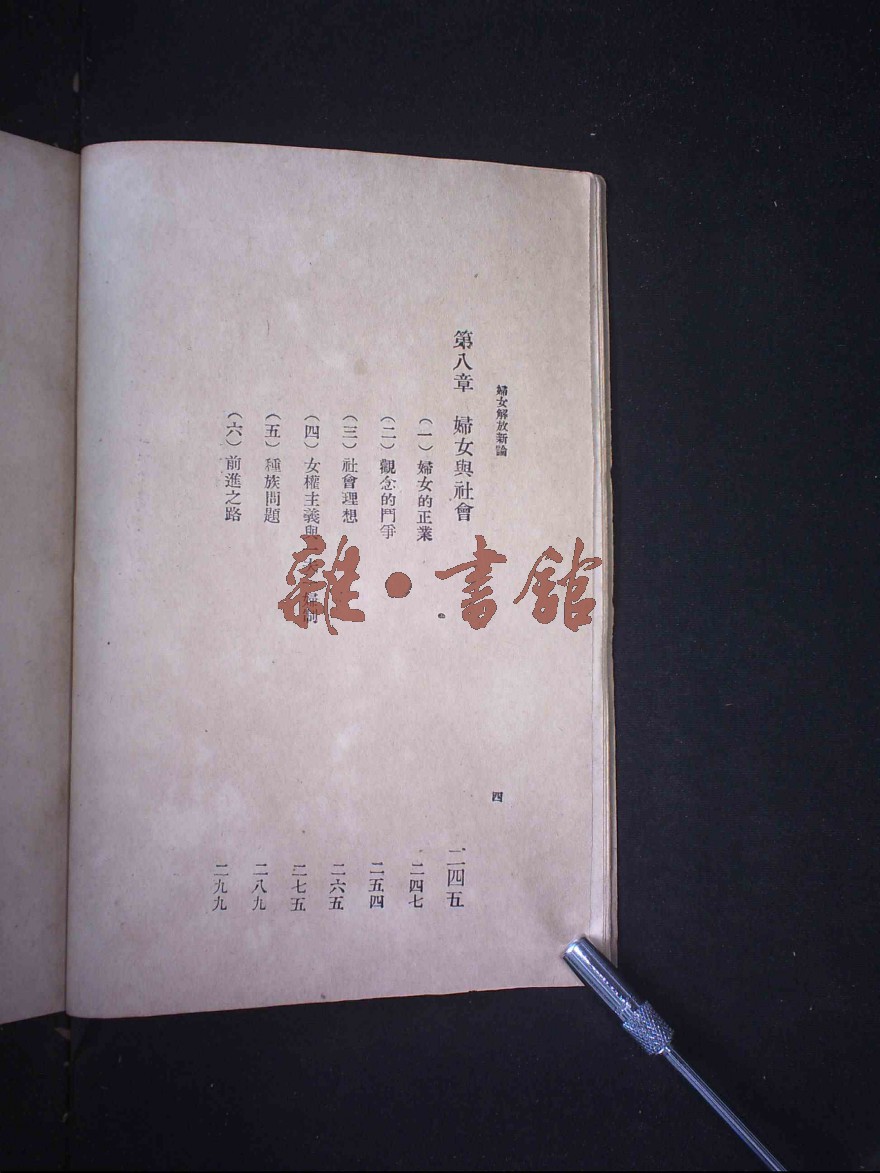 婦女解放新論
四
第八章 婦女與社會 二四五
(一)婦女的正業 二四七
(二)觀念的鬥爭 二五四
(三)社會理想 二六五
(四)女權主義與一夫一婦制 二七五
(五)種族問題 二八九
(六)前進之路 二九九
雜·書館